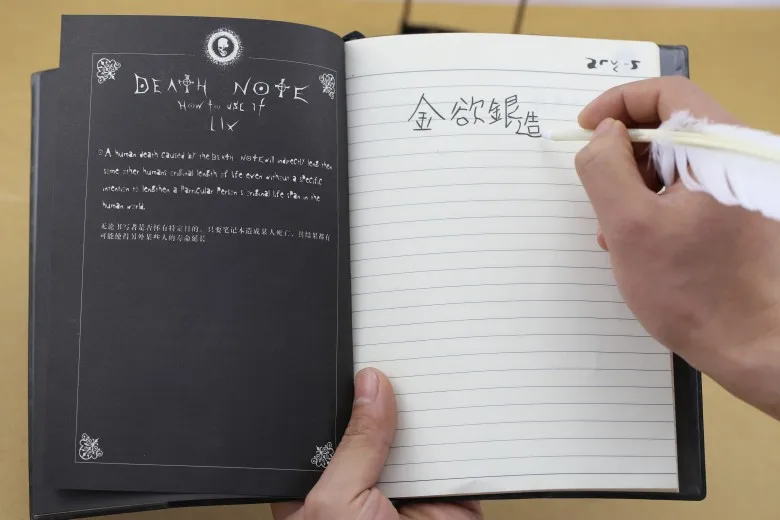 DEATH NOTE
HOW to USE It
LIX
A human death caused by the DEATH NOTE will indirectly lengthen
some other humans original length of life even without a specific
intention to lengthen a particular person's original life span in the
human world.
无论书写者是否怀有特定目的，只要笔记本造成某人死亡，其结果都有
可能使得另外某些人的寿命延长
金欲銀造